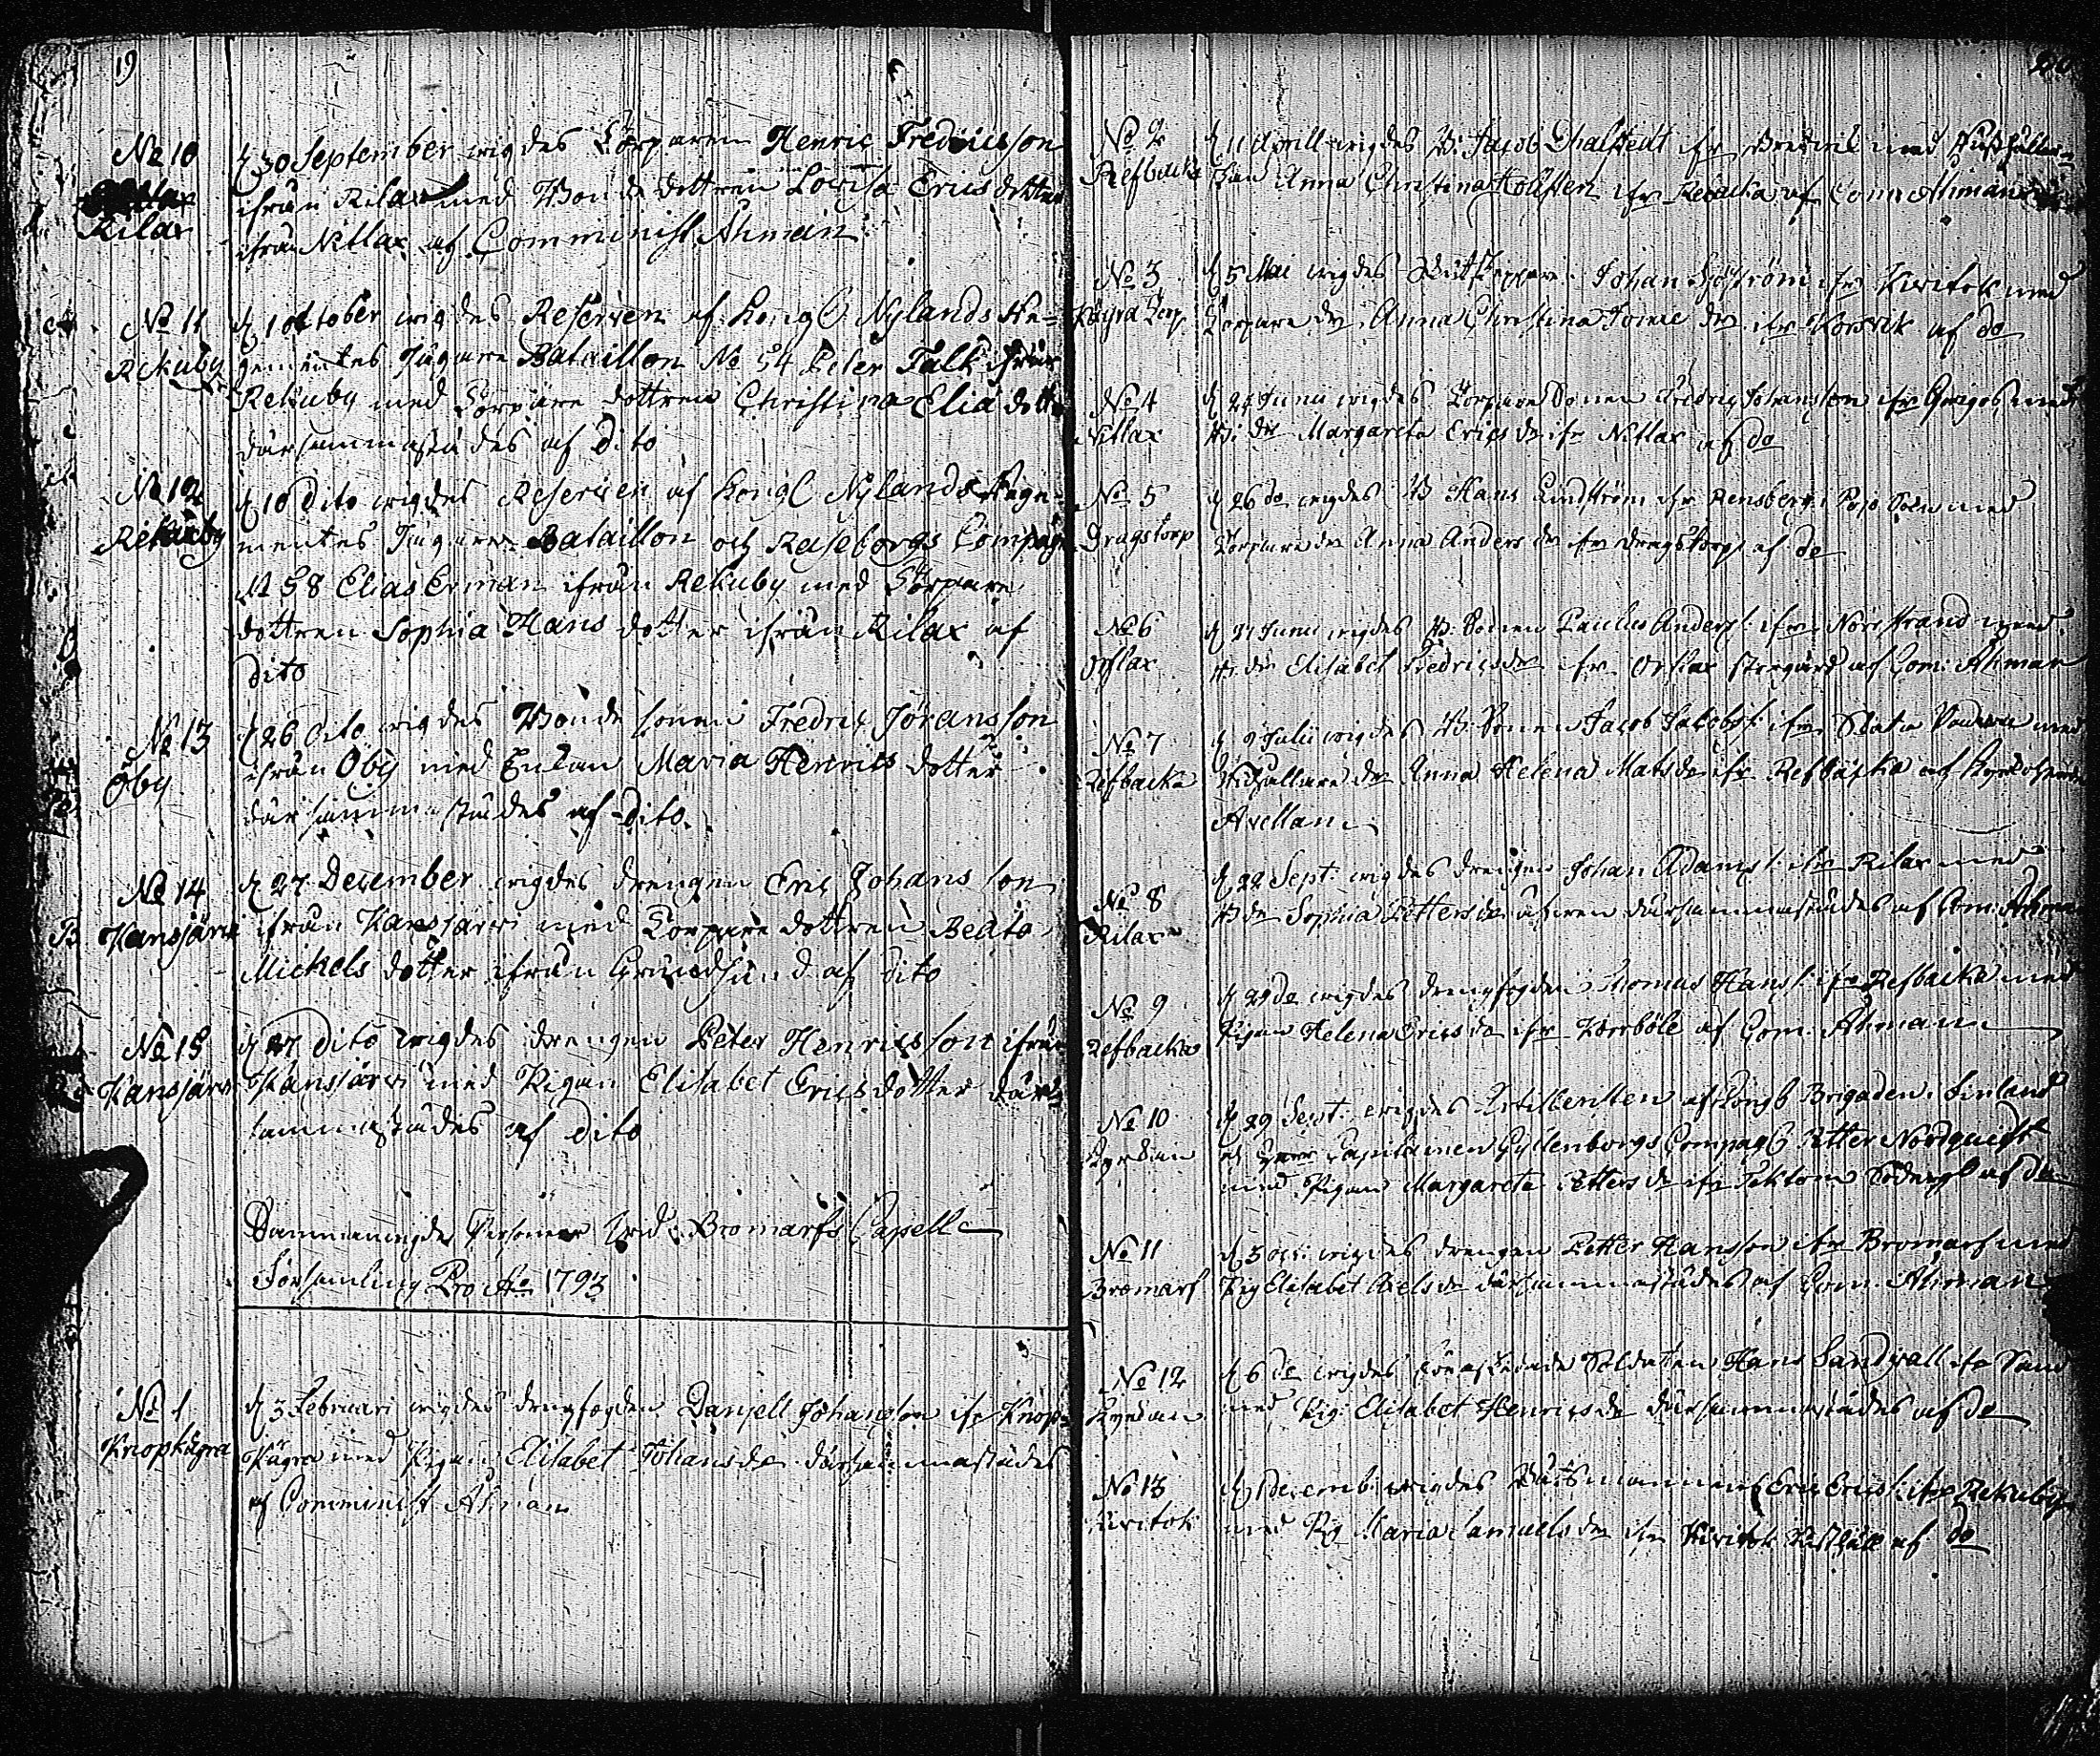 19
No 10
Rilax
d 30 September wigdes Torparen Henric Fredricsson
ifrån Rilax med Bonde dottren Lovisa Erics dotter
ifrån Nitlax af Comminist: Åhman
No 11
Rekuby
d 1 October wigdes Reserven af Kongl Nylands Re=
gementes Jägare Bataillon No 54 Peter Falk ifrån
Rekuby med Torpare dottren Christina Elia dotter
därsammastädes af Dito
No 12
Rekuby
d 10 Dito wigdes Reserven af Kongl Nylands Rege-
mentes Jägare Bataillon och Raseborgs Compagn
N 58 Elias Erman ifrån Rekuby med Torpare
dottren Sophia Hans dotter ifrån Rilax af
dito
No 13
Öby
d 26 dito wigdes Bonde sonen Fredric Jöransson
ifrån Öby med Enkan Maria Henrics dotter
därsammastädes af Dito
No 14
Kansjärvi
d 27 December wigdes drengen Eric Johans son
ifrån Kansjärvi med Torpare dottren Beata
Mickels dotter ifrån Grundsund af Dito
No 15
Kansjärvi
d 27 Dito wigdes drengen Peter Henricsson ifrån
Kansjärvi med Pigan Elisabet Ericsdotter där=
sammastädes af Dito
Sammanwigde Personer uti Bromarfs Capell
Församling Pro Ao 1793
No 1
Knopkägra
d 3 Februari wigdes drengfogden Danjell Johansson ifr Knop=
kägra med Pigan Elisabet Johansdr därsammastädes
af Comminist Åhman
No 2
Refbacka
d 11 Aprill wigdes Jacob ifr med
Anna Christina ifr Refbacka af Com: Åhman
No 3
Kägra Torp
d 5 Mai wigdes Johan Sjöström ifr Kivitok med
Torpare dr Anna Christina dr ifr Korsvik af do
No 4
Nitlax
d 24 Junii wigdes Torpare Sonen Fredric Johansson ifr med
dr Margareta Erics dr ifr Nitlax af do
No 5
Dragstorp
d 26 do wigdes B Hans Lindström ifr Rensberg i Pojo Sokn med
Torpare dr Anna Anders dr ifr Dragstorp af do
No 6
Orslax
d Junii wigdes B: Sonen Paulus Anders: ifr Norrstrand med
B: dr Elisabet Fredrics dr ifr Orslax af Com: Åhman
No 7
Refbacka
d 9 Julii wigdes B: Sonen Jacob Jacobs: ifr med
dr Anna Helena Mats dr ifr Refbacka af
Avellan
No 8
Rilax
d 22 Sept: wigdes drengen Johan Adams: ifr Rilax med
B dr Sophia Petters dr därsammastädes af Com: Åhman
No 9
Refbacka
d 29 do wigdes drengfogden Thomas Hans: ifr Refbacka med
Pigan Helena Erics dr ifr Werbole af Com: Åhman
No 10
d 29 Sept: wigdes Artilleristen af Kongl Brigaden i Finland
Capitainen Gyllenborgs Compag Petter Nordquist
med Pigan Margareta Petters dr ifr Tektom af do
No 11
Bromarf
d 5 Oct: wigdes drengen Petter Hansson ifr Bromarf med
Pig Elisabet Axels dr därsammastädes af Com: Åhman
No 12
d 6 do wigdes Soldaten Hans Sandvall ifr
med Pig: Elisabet Henrics dr därsammastädes af do
No 13
Kivitok
d 1 Decemb: wigdes Båtsmannen Eric Erics: ifr Rekuby
med Pig Maria Samuels dr ifr Kivitok af do